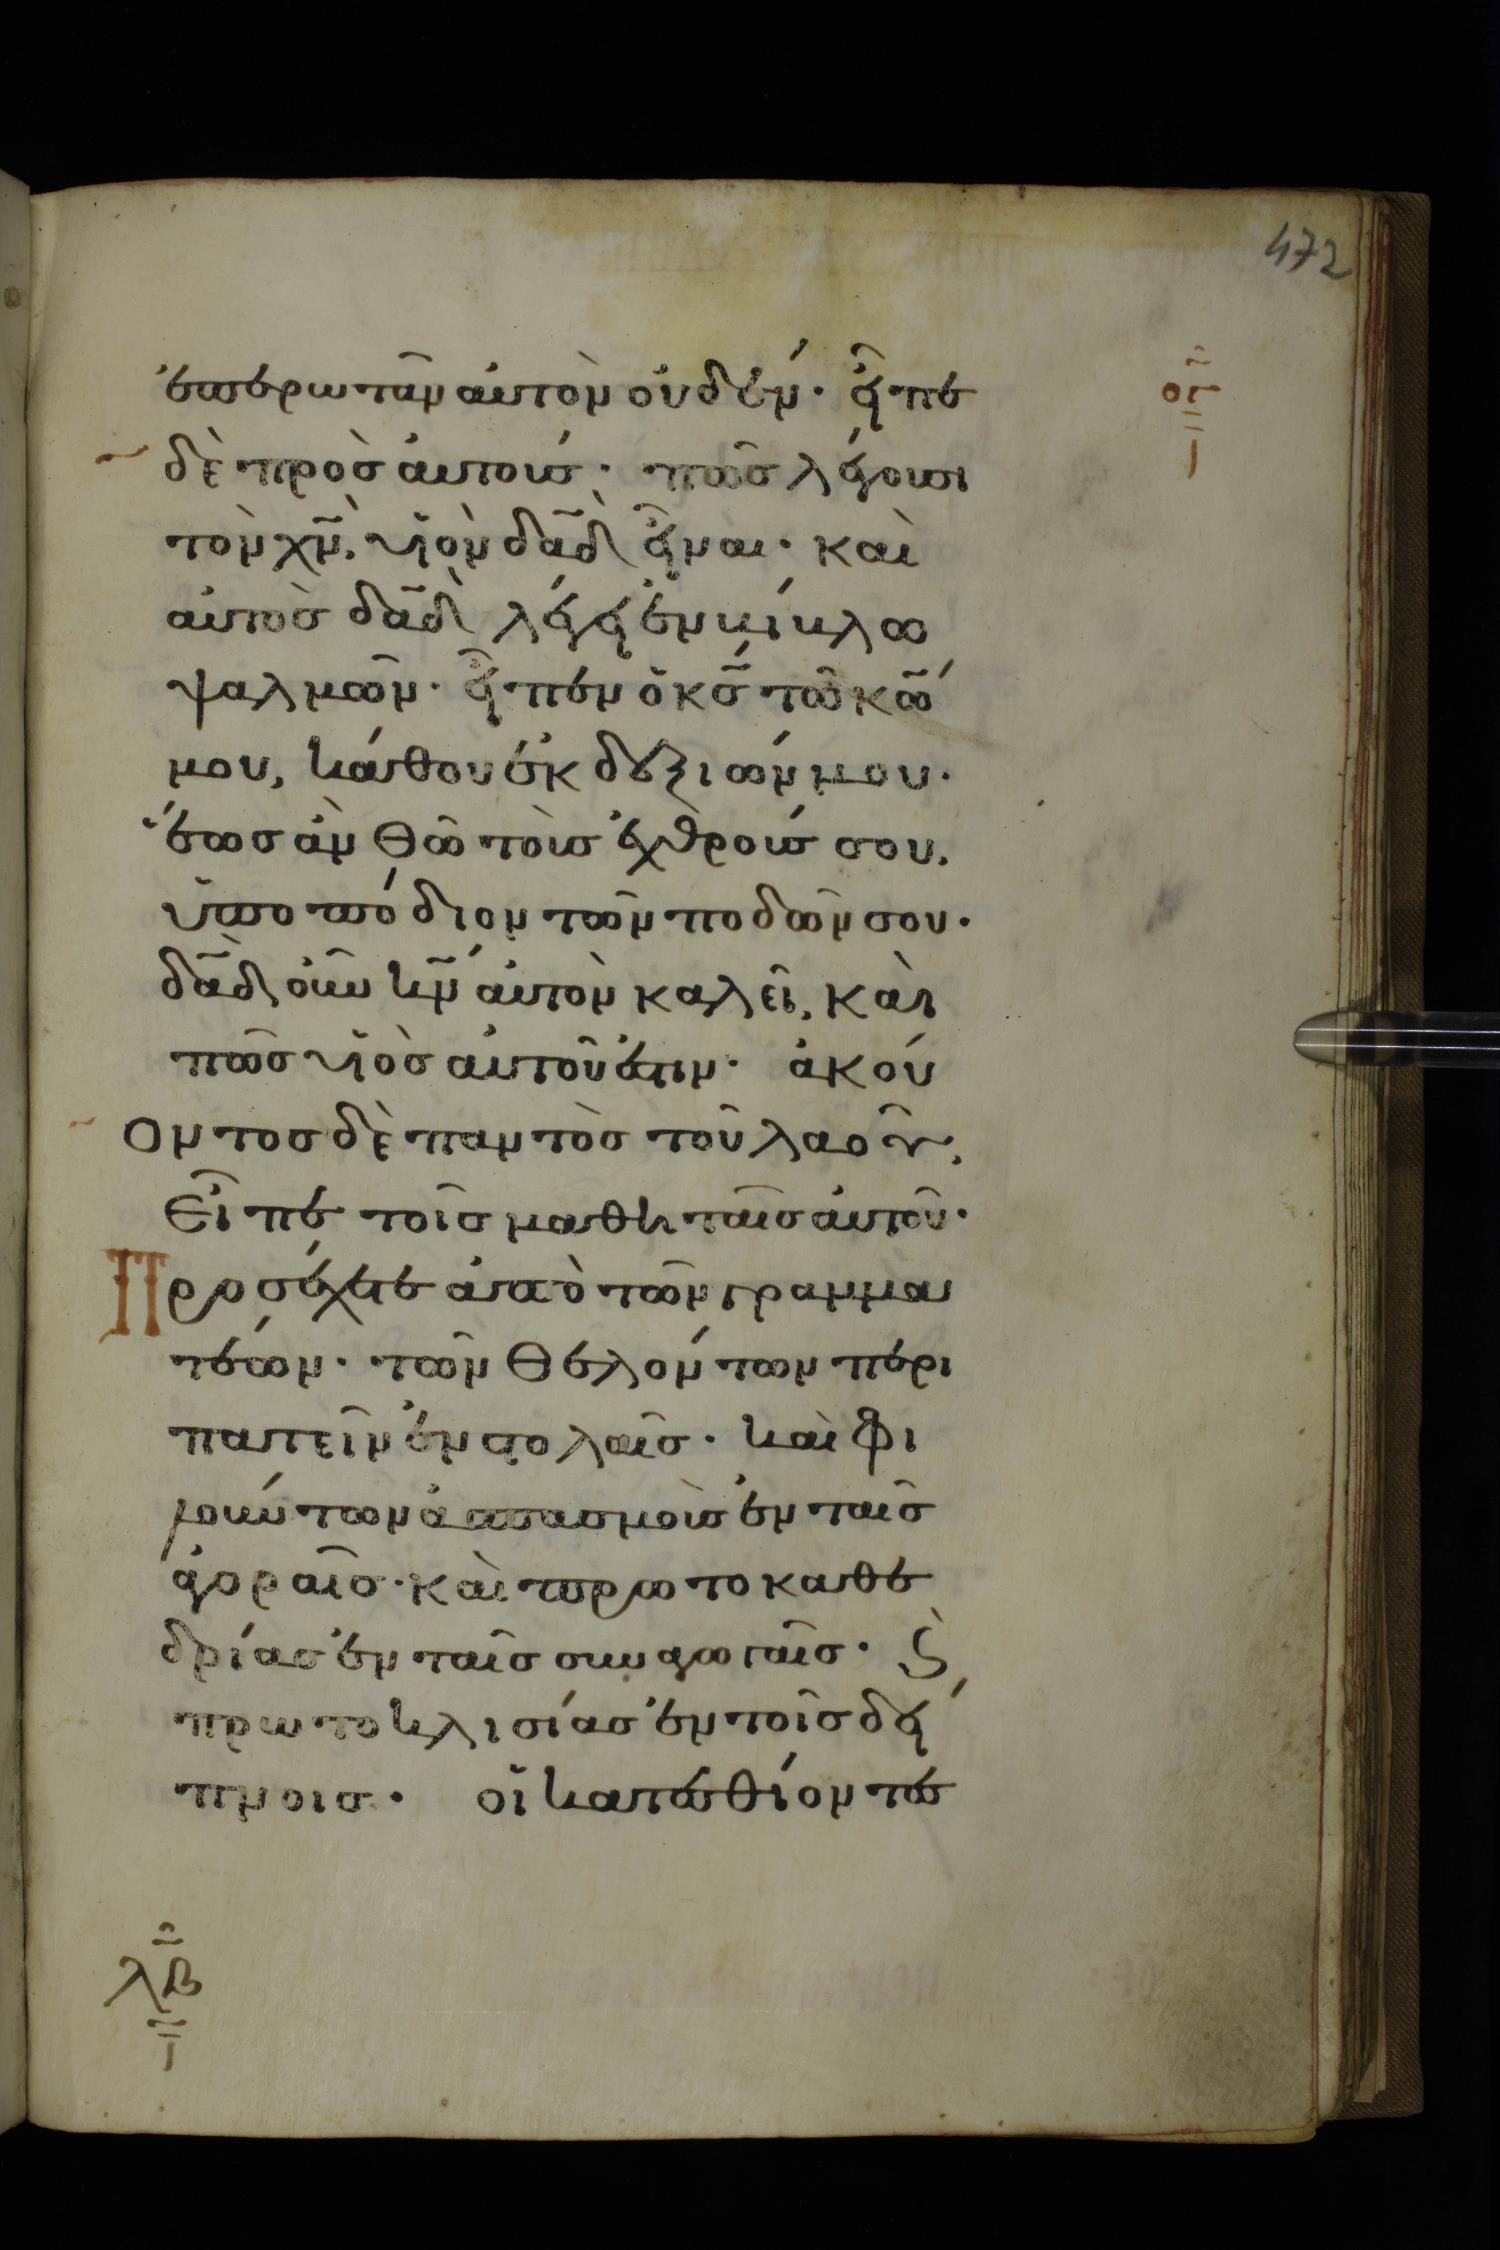 472
ἐπερωτᾶν αὐτὸν οὐδέν· εἶπε
δὲ πρὸς αὐτούς· πῶς λέγουσι
τὸν χν̄, υἱὸν δᾱδ εἶναι· καὶ
αὐτὸς δᾱδ λέγει ἐν βίβλω
ψαλμῶν· εἶπεν ὁ κς̄ τῶ κω̄
μου, κάθου ἐκ δεξιῶν μου·
ἕως ἂν θῶ τοὺς ἐχθρούς σου,
ὑποπόδιον τῶν ποδῶν σου·
δᾱδ οὖν κν̄ αὐτὸν καλεῖ, καὶ
πῶς υἱὸς αὐτοῦ ἐστιν· ἀκού
οντος δὲ παντὸς τοῦ λαοῦ,
εἶπε τοῖς μαθηταῖς αὐτοῦ·
Προσέχετε ἀπὸ τῶν γραμμα
τέων· τῶν θελόντων περι
πατεῖν ἐν στολαῖς· καὶ φι
λούντων ἀσπασμοὺς ἐν ταῖς
ἀγοραῖς· καὶ πρωτοκαθε
δρίας ἐν ταῖς συναγωγαῖς· ϗ
πρωτοκλισίας ἐν τοῖς δεί
πνοις· οἳ κατεσθίοντε
λβ